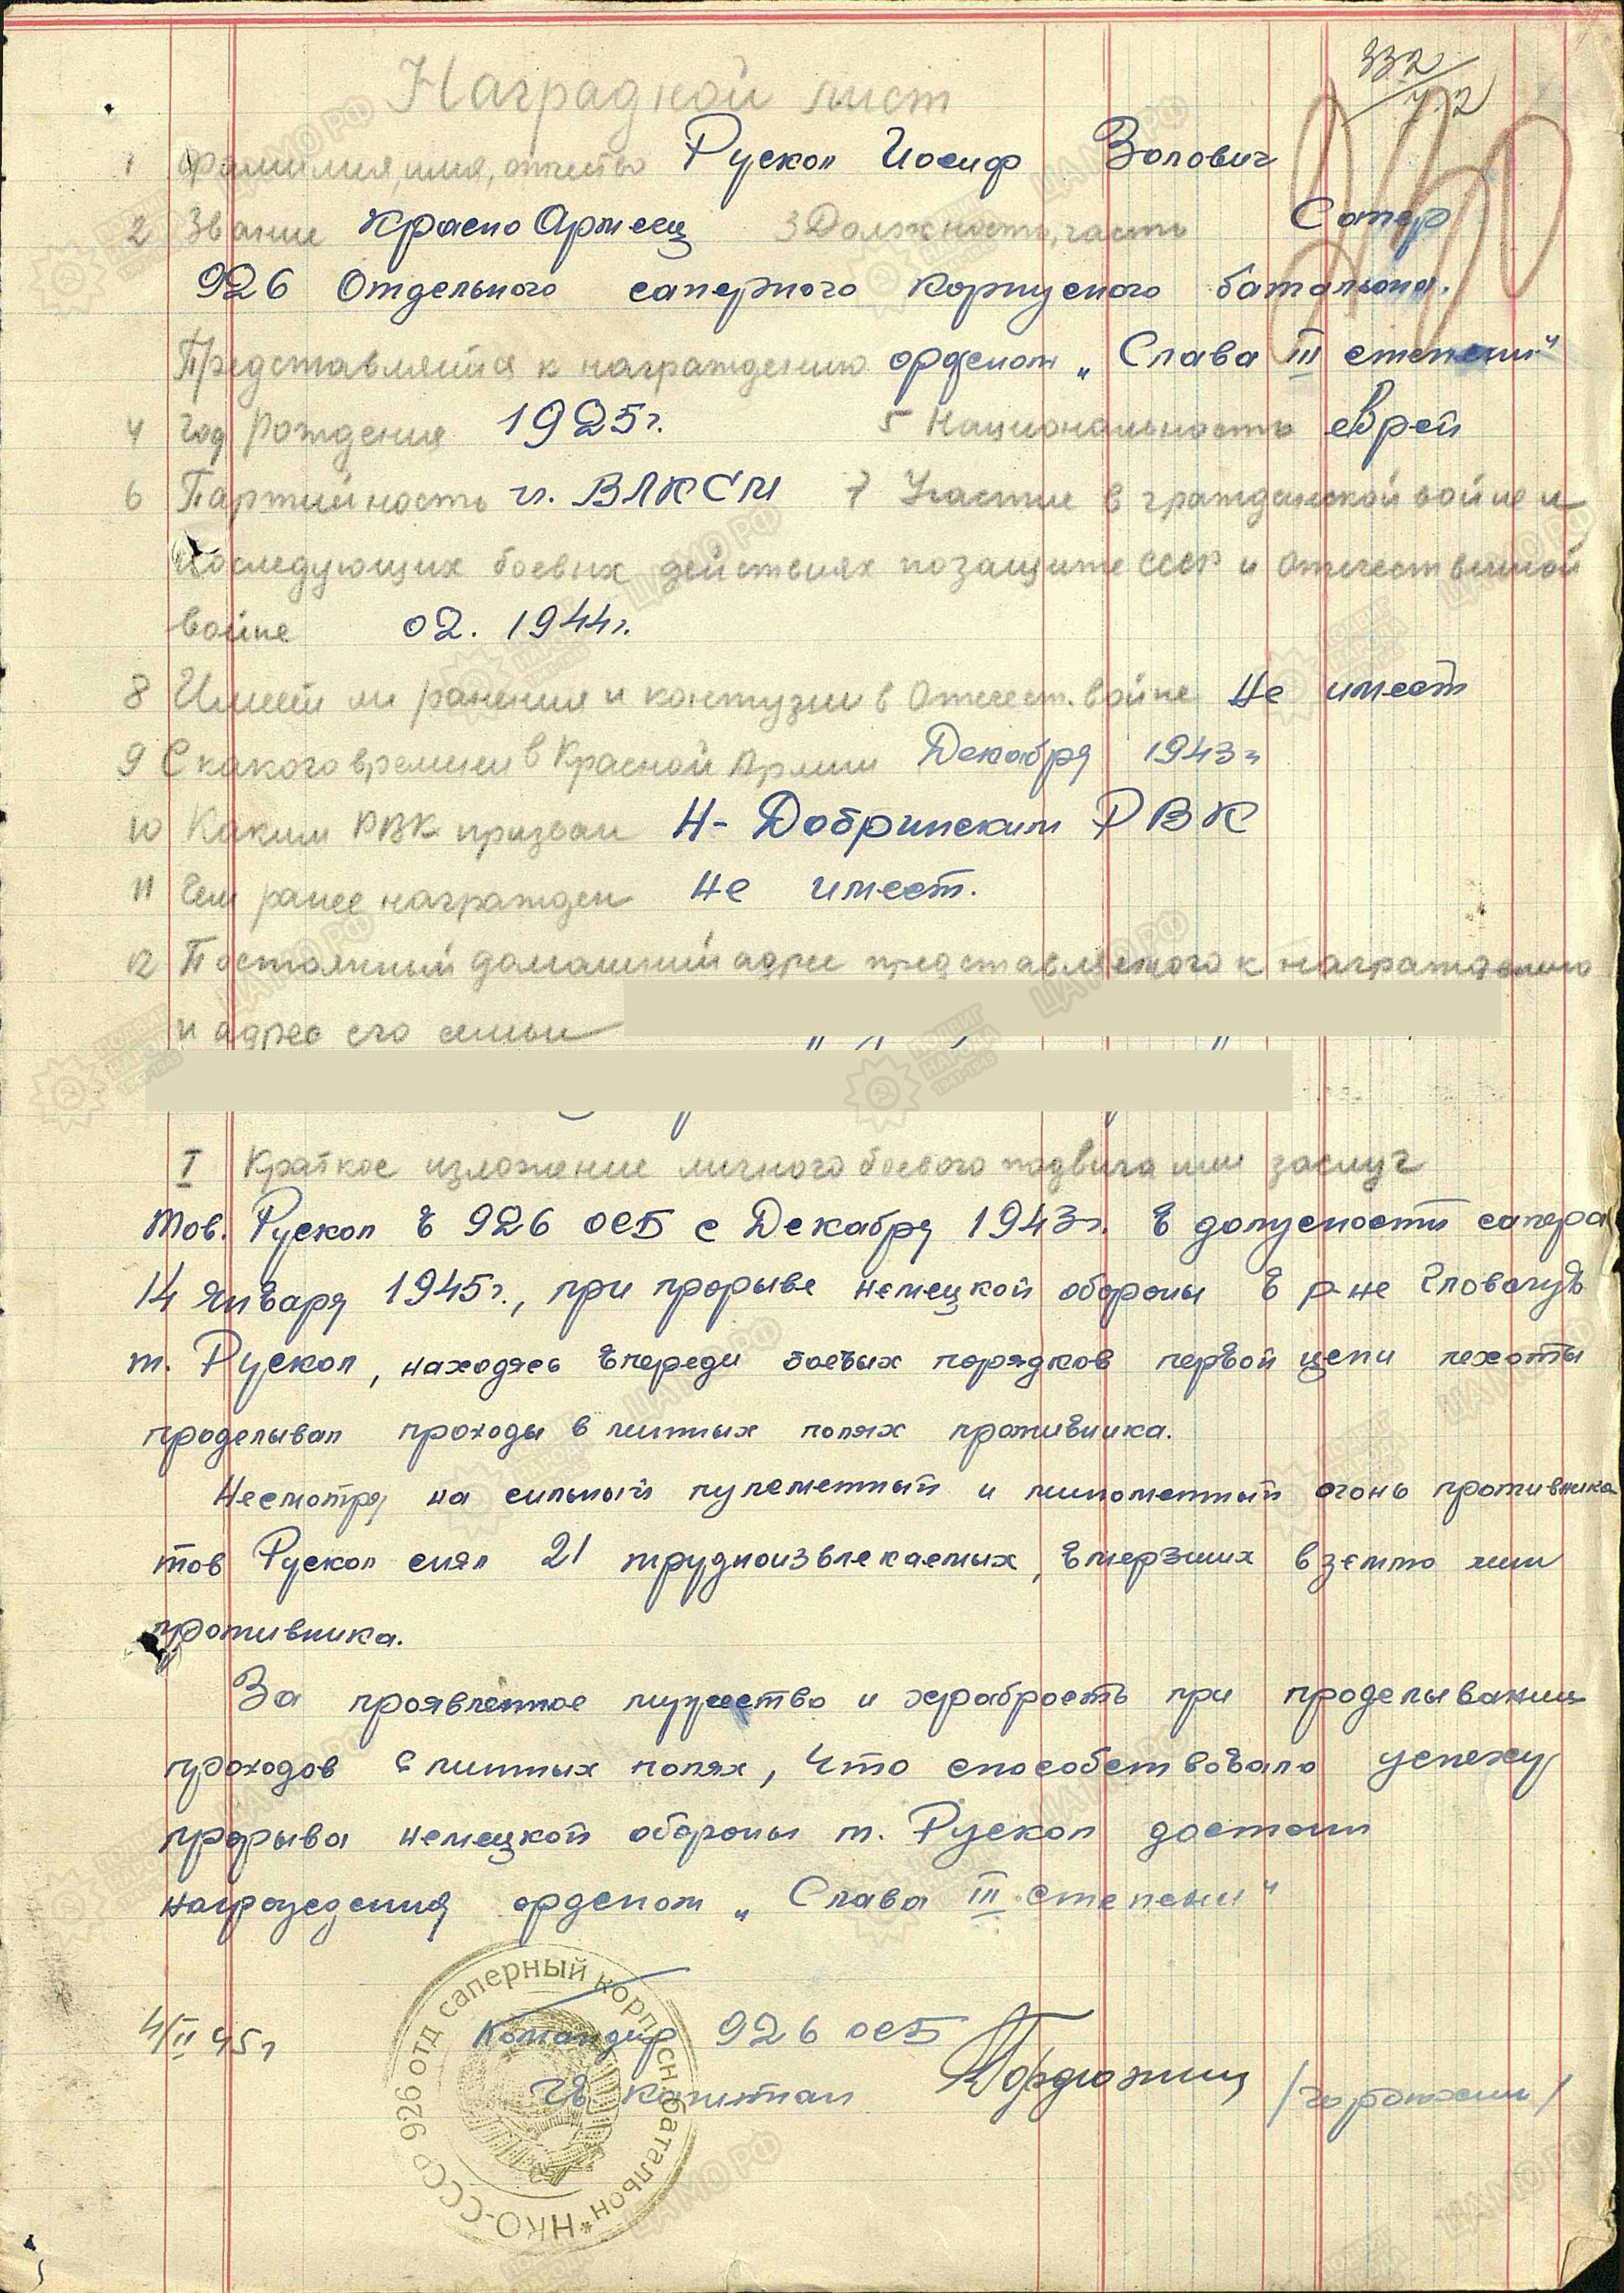 332
Наградной лист
1 фамилия, имя, отчество Рускол Иосиф Волович
2 Звание КрасноАрмеец 3 Должность, часть Сапер
926 Отдельного саперного корпусного батальона.
Представляется к награждению орденом „Слава III степени"
4 Год рождения 1925г. 5 Национальность еврей
6 Партийность чл. ВЛКСМ 7 Участие в гражданской войне и
последующих боевых действиях по защите СССР и отечественной
войне 02. 1944г.
8 Имеет ли ранения и контузии в Отечест. войне Не имеет
9 С какого времени в Красной Армии Декабря 1943г
10 Каким РВК призван Н-Добринским РВК
11 Чем ранее награжден Не имеет.
12 Постоянный домашний адрес представляемого к награждению
и адрес его семьи
I Краткое изложение личного боевого подвига или заслуг
Тов. Рускол в 926 ОСБ с Декабря 1943г. в должности сапера
14 Января 1945г., при прорыве немецкой обороны в р-не Гловачув
т. Рускол, находясь впереди боевых порядков первой цепи пехоты
проделывал проходы в минных полях противника.
Несмотря на сильный пулеметный и минометный огонь противника
тов Рускол снял 21 трудноизвлекаемых, вмерзших в землю мин
противника.
За проявленное мужество и храбрость при проделывании
проходов в минных полях, что способствовало успеху
прорыва немецкой обороны т. Рускол достоин
награждения орденом „Слава III степени"
4/II 45г Командир 926 ОСБ
Гв. капитан
НКО-СССР 926 отд саперный корпусн батальон *
ЦАМО РФ
ПОДВИГ НАРОДА 1941-1945